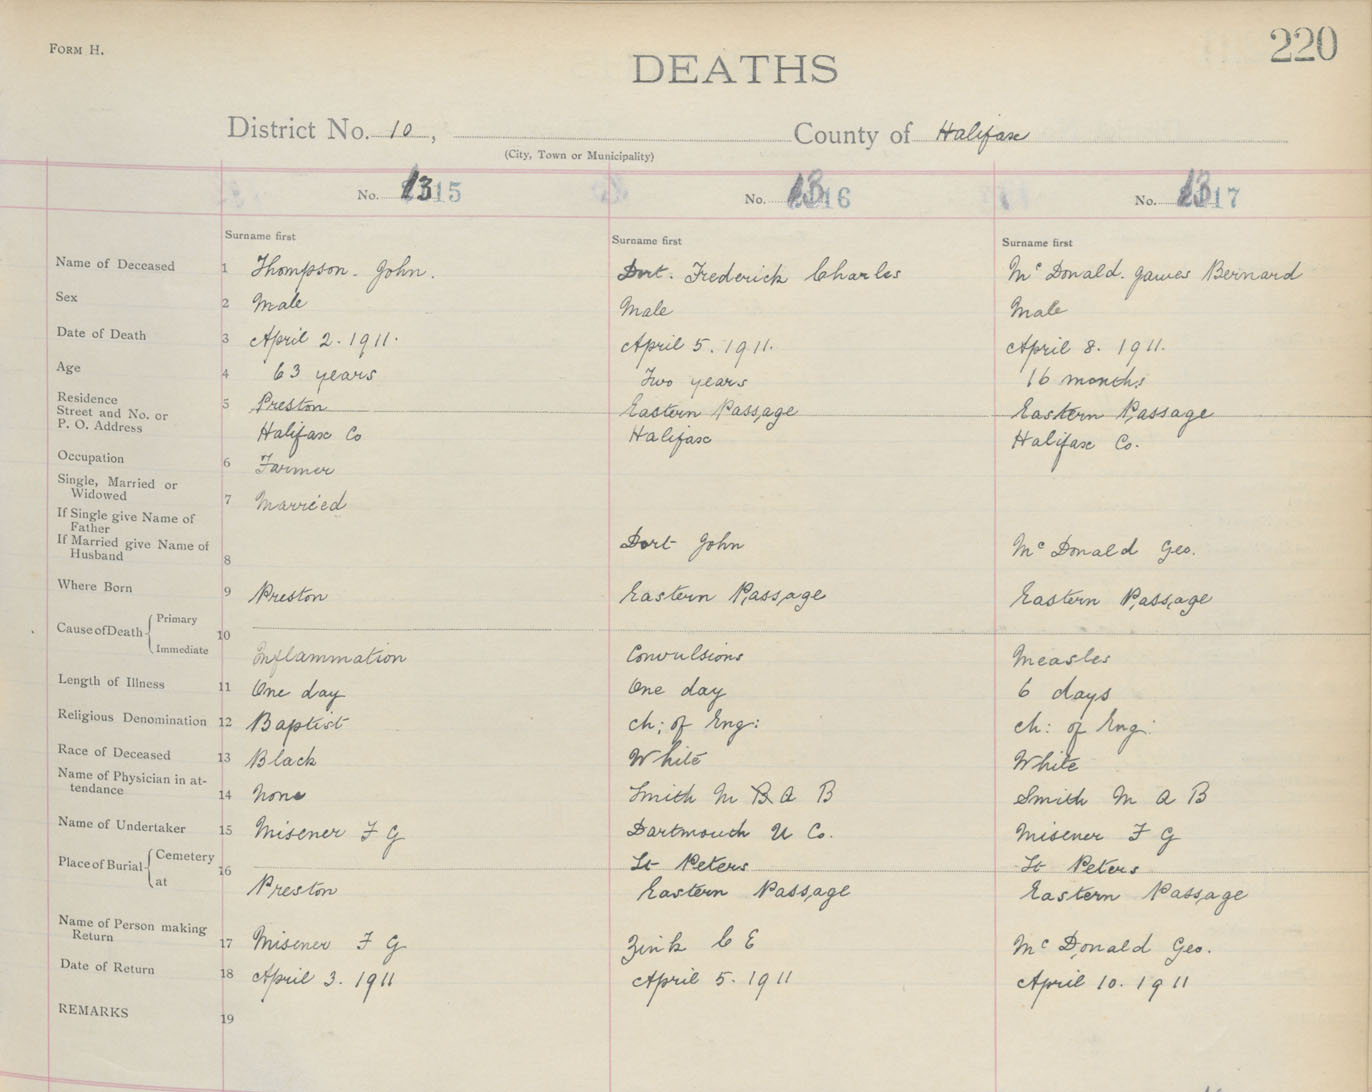 FORM H.
220
DEATHS
District No. 10, County of Halifax
(City, Town or Municipality)
No. 1315 No. 1316 No. 1317
Surname first Surname first Surname first
Name of Deceased 1 Thompson. John. Dort. Frederick Charles Mc Donald. James Bernard
Sex 2 Male Male Male
Date of Death 3 April 2. 1911. April 5. 1911. April 8. 1911.
Age 4 63 years Two years 16 months
Residence 5 Preston Eastern Passage Eastern Passage
Street and No. or
P. O. Address Halifax Co Halifax Halifax Co.
Occupation 6 Farmer
Single, Married or
Widowed 7 Married
If Single give Name of
Father
If Married give Name of Dort John Mc Donald Geo.
Husband 8
Where Born 9 Preston Eastern Passage Eastern Passage
Cause of Death Primary 10
Immediate Inflammation Convulsions Measles
Length of Illness 11 One day One day 6 days
Religious Denomination 12 Baptist ch: of Eng: ch: of Eng:
Race of Deceased 13 Black White White
Name of Physician in at-
tendance 14 None Smith M B A B Smith M A B
Name of Undertaker 15 Misener F G Dartmouth U Co. Misener F G
Place of Burial Cemetery 16 St Peters St Peters
at Preston Eastern Passage Eastern Passage
Name of Person making
Return 17 Misener F G Zink C E Mc Donald Geo.
Date of Return 18 April 3. 1911 April 5. 1911 April 10. 1911
REMARKS 19